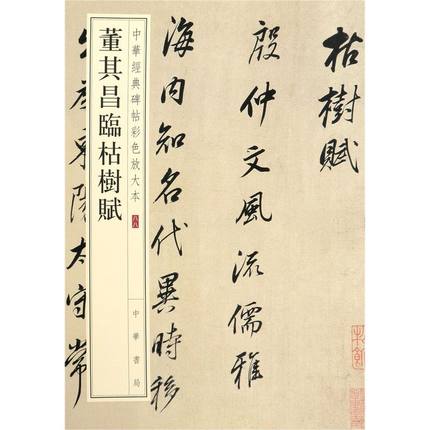 枯樹賦
殷仲文風流儒雅
海内知名代異時移
中華經典碑帖彩色放大本
中華書局
董其昌臨枯樹賦
出為東陽太守常